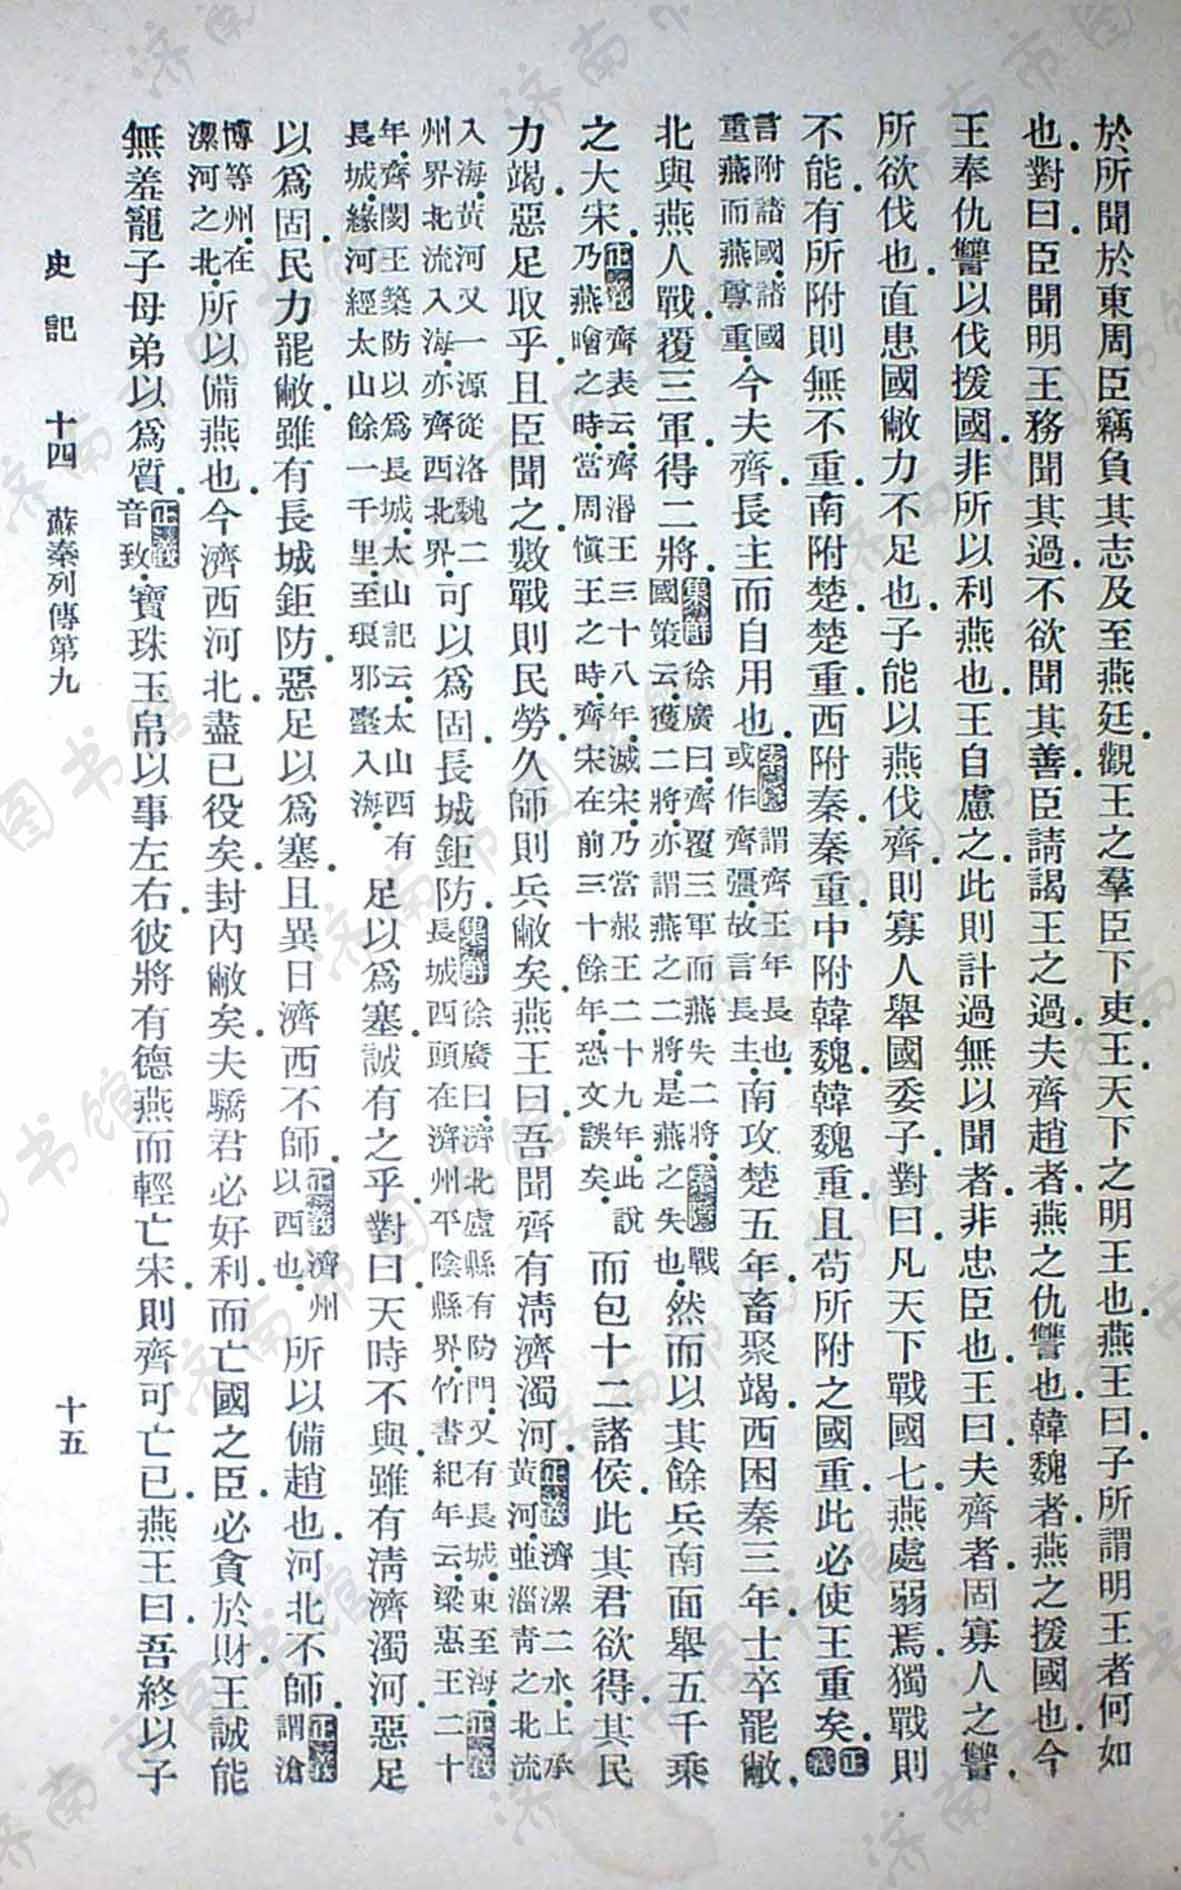 於所聞於東周臣竊負其志及至燕廷觀王之羣臣下吏王天下之明王也燕王曰子所謂明王者何如
也對曰臣聞明王務聞其過不欲聞其善臣請謁王之過夫齊趙者燕之仇讐也韓魏者燕之援國也今
王奉仇讐以伐援國非所以利燕也王自慮之此則計過無以聞者非忠臣也王曰夫齊者固寡人之讐
所欲伐也直患國敝力不足也子能以燕伐齊則寡人舉國委子對曰凡天下戰國七燕處弱焉獨戰則
不能有所附則無不重南附楚楚重西附秦秦重中附韓魏韓魏重且苟所附之國重此必使王重矣正義
言附諸國諸國重燕而燕尊重今夫齊長主而自用也索隱謂齊王年長也或作齊彊故言長主南攻楚五年畜聚竭西困秦三年士卒罷敝
北與燕人戰覆三軍得二將集解徐廣曰齊覆三軍而燕失二將索隱戰國策云獲二將亦謂燕之二將是燕之失也然而以其餘兵南面舉五千乘
之大宋正義齊表云齊湣王三十八年滅宋乃當赧王二十九年此說乃燕噲之時當周愼王之時齊宋在前三十餘年恐文誤矣而包十二諸侯此其君欲得其民
力竭惡足取乎且臣聞之數戰則民勞久師則兵敝矣燕王曰吾聞齊有淸濟濁河正義濟漯二水上承黃河並淄青之北流
入海黃河又一源從洛魏二州界北流入海亦齊西北界可以爲固長城鉅防集解徐廣曰濟北盧縣有防門又有長城東至海正義長城西頭在濟州平陰縣界竹書紀年云梁惠王二十
年齊閔王築防以爲長城太山記云太山西有長城緣河經太山餘一千里至琅邪臺入海足以爲塞誠有之乎對曰天時不與雖有淸濟濁河惡足
以爲固民力罷敝雖有長城鉅防惡足以爲塞且異日濟西不師正義濟州以西也所以備趙也河北不師正義謂滄
博等州在漯河之北所以備燕也今濟西河北盡已役矣封內敝矣夫驕君必好利而亡國之臣必貪於財王誠能
無羞寵子母弟以爲質正義音致寶珠玉帛以事左右彼將有德燕而輕亡宋則齊可亡已燕王曰吾終以子
史記 十四 蘇秦列傳第九 十五
济南市图书馆